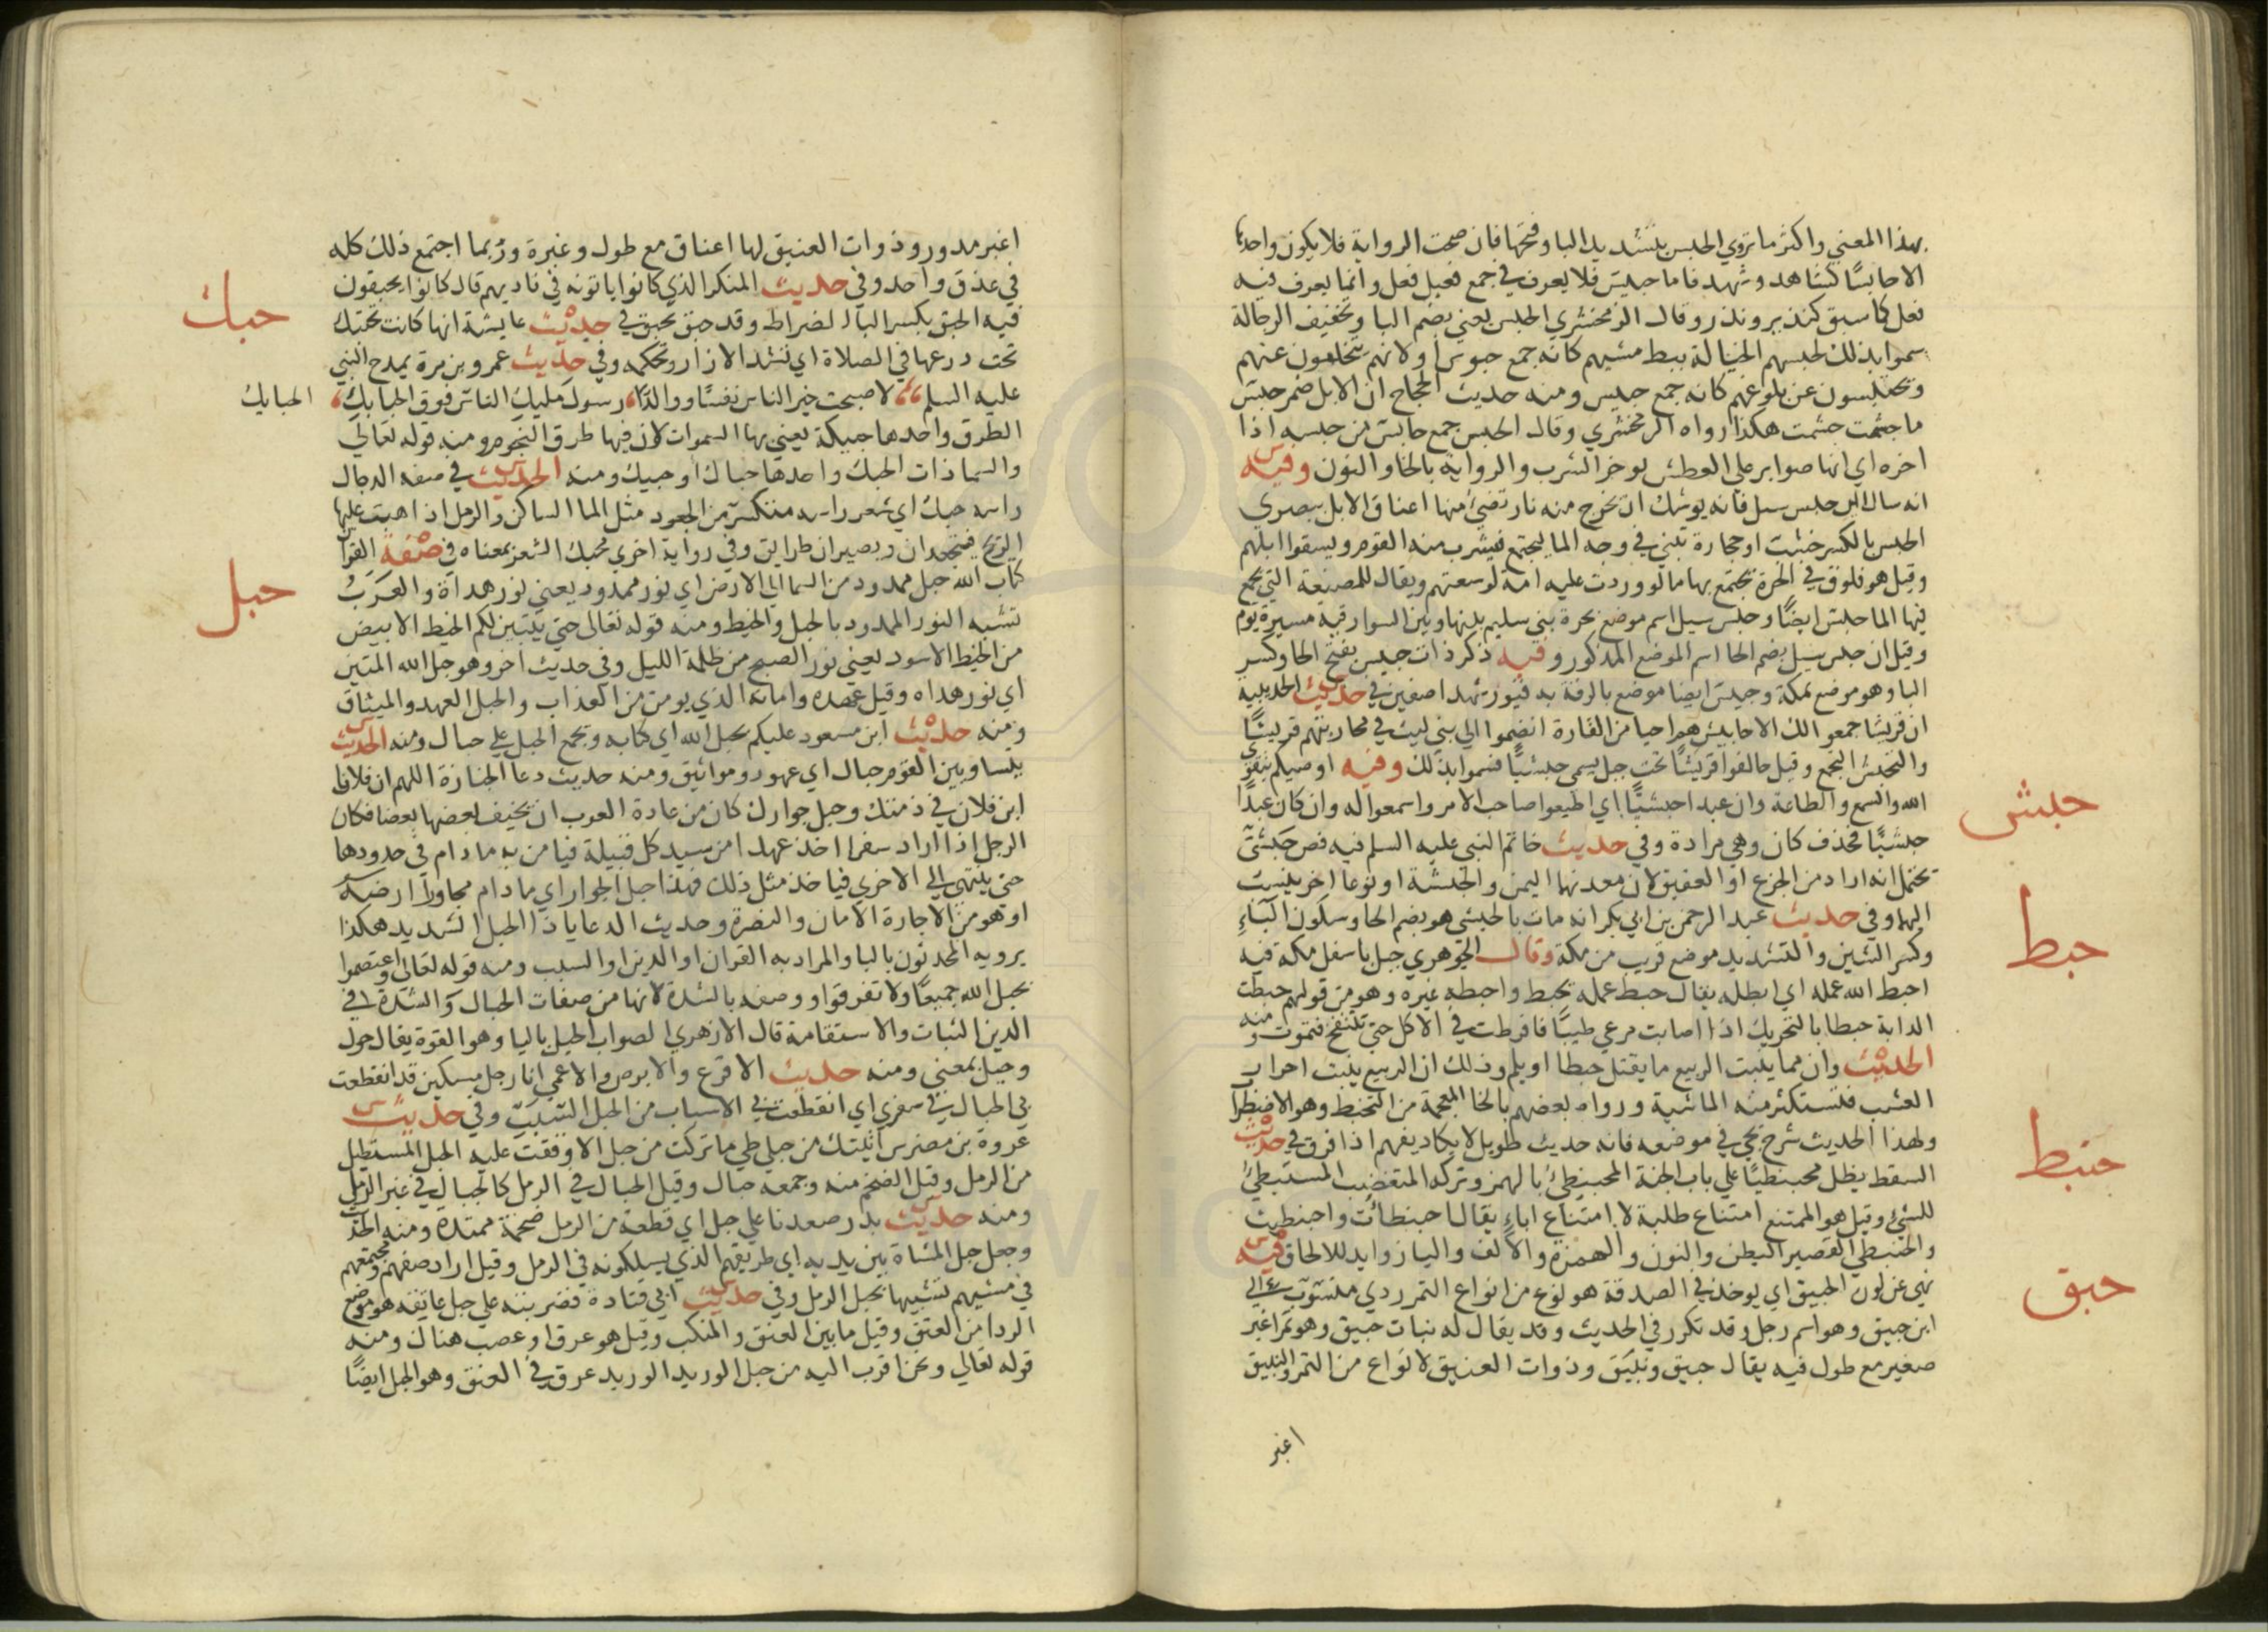 بهذا المعني واكثر ما تروي الحبس بتشديد البا وفتحها فان صحت الرواية فلا يكون واحدها
الا حابسًا كشاهد وشهد فاما حبيس فلا يعرف في جمع فعيل فعل وانما يعرف فيه
فعل كما سبق كنذير ونذر وقال الزمخشري الحبس يعني بضم البا وتخفيف الرجالة
سموا بذلك لحبسهم الخيالة ببطء مشيهم كانه جمع حبوس او لانهم يتخلفون عنهم
ويحتبسون عن بلوغهم كانه جمع حبيس ومنه حديث الحجاج ان الابل ضمر حبس
ما جشمت جشمت هكذا رواه الزمخشري وقال الحبس جمع حابس من حبسه اذا
اخره اي انها صوابر علي العطش توخر الشرب والرواية بالخا والنون وفيه
انه سال اين حبس سيل فانه يوشك ان تخرج منه نار تضيء منها اعناق الابل ببصري
الحبس بالكسر خشب او حجارة تبني في وجه الما ليجتمع فيشرب منه القوم ويسقوا ابلهم
وقيل هو فلوق في الحرة يجتمع بها ما لو وردت عليه امة لوسعتهم ويقال للمصنعة التي يجمع
فيها الما حبس ايضًا وحبس سيل اسم موضع بحرة بني سليم بينها وبين السوارقية مسيرة يوم
وقيل ان حبس سيل بضم الحا اسم الموضع المذكور وفيه ذكر ذات حبيس بفتح الحا وكسر
البا وهو موضع بمكة وحبيس ايضا موضع بالرقة به قبور شهدا صفين في حديث الحديبية
ان قريشا جمعوا لك الاحابيش هم احيا من القارة انضموا الي بني ليث في محاربتهم قريشًا
والتحبش التجمع وقيل حالفوا قريشًا تحت جبل يسمي حبشيًّا فسموا بذلك وفيه اوصيكم بتقوي
الله والسمع والطاعة وان عبدا حبشيًّا اي اطيعوا صاحب الامر واسمعوا له وان كان عبدًا
حبشيًّا فحذف كان وهي مرادة وفي حديث خاتم النبي عليه السلم فيه فص حبشيّ
يحتمل انه اراد من الجزع او العقيق لان معدنهما اليمن والحبشة او نوعا اخر ينسب
اليهما وفي حديث عبد الرحمن بن ابي بكر انه مات بالحبشي هو بضم الحا وسكون الباء
وكسر الشين والتشديد موضع قريب من مكة وقال الجوهري جبل باسفل مكة فيه
احبط الله عمله اي ابطله يقال حبط عمله يحبط واحبطه غيره وهو من قولهم حبطت
الدابة حبطا بالتحريك اذا اصابت مرعي طيبًا فافرطت في الاكل حتي تنتفخ فتموت ومنه
الحديث وان مما ينبت الربيع ما يقتل حبطا او يلم وذلك ان الربيع ينبت احرار
العشب فتستكثر منه الماشية ورواه بعضهم بالخا المعجمة من التخبط وهو الاضطراب
ولهذا الحديث شرح يجي في موضعه فانه حديث طويل لا يكاد يفهم اذا فرق في حديث
السقط يظل محبنطيًا علي باب الجنة المحبنطئ بالهمز وتركه المتغضب المستبطئ
للشيء وقيل هو الممتنع امتناع طلبة لا امتناع اباء يقال احبنطأت واحبنطيت
والحبنطي القصير البطن والنون والهمزة والالف واليا زوايد للالحاق فيه
نهي عن لون الحبيق اي يوخذ في الصدقة هو نوع من انواع التمر ردي منسوب الي
ابن حبيق وهو اسم رجل وقد تكرر في الحديث وقد يقال له بنات حبيق وهو تمر اغبر
صغير مع طول فيه يقال حبيق ونبيق وذوات العنيق لانواع من التمر والنبيق
اغبر
حبش
حبط
حبنط
حبق
اغبر مدور وذوات العنيق لها اعناق مع طول وغبرة وربما اجتمع ذلك كله
في عذق واحد وفي حديث المنكر الذي كانوا ياتونه في ناديهم قال كانوا يحبقون
فيه الحبق بكسر البا الضراط وقد حبق يحبق في حديث عايشة انها كانت تحتبك
تحت درعها في الصلاة اي تشد الازار وتحكمه وفي حديث عمرو بن مرة يمدح النبي
عليه السلم لاصبحت خير الناس نفسًا ووالدًا، رسول مليك الناس فوق الحبايك،
الطرق واحدها حبيكة يعني بها السموات لان فيها طرق النجوم ومنه قوله تعالي
والسما ذات الحبك واحدها حباك او حبيك ومنه الحديث في صفه الدجال
راسه حبك اي شعر راسه متكسر من الجعود مثل الما الساكن والرمل اذا هبت عليها
الريح فيتجعدان ويصيران طرايق وفي رواية اخري محبك الشعر بمعناه في صفة القرآن
كتاب الله حبل ممدود من السما الي الارض اي نور ممدود يعني نور هداه والعرب
تشبه النور الممدود بالحبل والخيط ومنه قوله تعالي حتي يتبين لكم الخيط الابيض
من الخيط الاسود يعني نور الصبح من ظلمة الليل وفي حديث اخر وهو حبل الله المتين
اي نور هداه وقيل عهده وامانه الذي يومن من العذاب والحبل العهد والميثاق
ومنه حديث ابن مسعود عليكم بحبل الله اي كتابه ويجمع الحبل علي حبال ومنه الحديث
بيننا وبين القوم حبال اي عهود ومواثيق ومنه حديث دعا الجنازة اللهم ان فلانا
ابن فلان في ذمتك وحبل جوارك كان من عادة العرب ان يخيف بعضها بعضا فكان
الرجل اذا اراد سفرا اخذ عهدا من سيد كل قبيلة فيامن به ما دام في حدودها
حتي ينتهي الي الاخري فياخذ مثل ذلك فهذا حبل الجوار اي ما دام مجاورا ارضه
او هو من الاجارة الامان والنصرة وحديث الدعا يا ذا الحبل الشديد هكذا
يرويه المحدثون بالبا والمراد به القران او الدين او السبب ومنه قوله تعالي واعتصموا
بحبل الله جميعًا ولا تفرقوا ووصفه بالشدة لانها من صفات الحبال والشدة في
الدين الثبات والاستقامة قال الازهري الصواب الحيل باليا وهو القوة يقال حول
وحيل بمعني ومنه حديث الاقرع والابرص والاعمي انا رجل مسكين قد انقطعت
بي الحبال في سفري اي انقطعت في الاسباب من الحبل السبب وفي حديث
عروة بن مضرس اتيتك من جبلي طي ما تركت من حبل الا وقفت عليه الحبل المستطيل
من الرمل وقيل الضخم منه وجمعه حبال وقيل الحبال في الرمل كالجبال في غير الرمل
ومنه حديث بدر صعدنا علي حبل اي قطعة من الرمل ضخمة ممتدة ومنه الحديث
وجعل حبل المشاة بين يديه اي طريقهم الذي يسلكونه في الرمل وقيل اراد صفهم ومجتمعهم
في مشيهم تشبيها بحبل الرمل وفي حديث ابي قتادة فضربته علي حبل عاتقه هو موضع
الردا من العنق وقيل ما بين العنق والمنكب وقيل هو عرق او عصب هناك ومنه
قوله تعالي ونحن اقرب اليه من حبل الوريد الوريد عرق في العنق وهو الحبل ايضًا
حبك
الحبايك
حبل